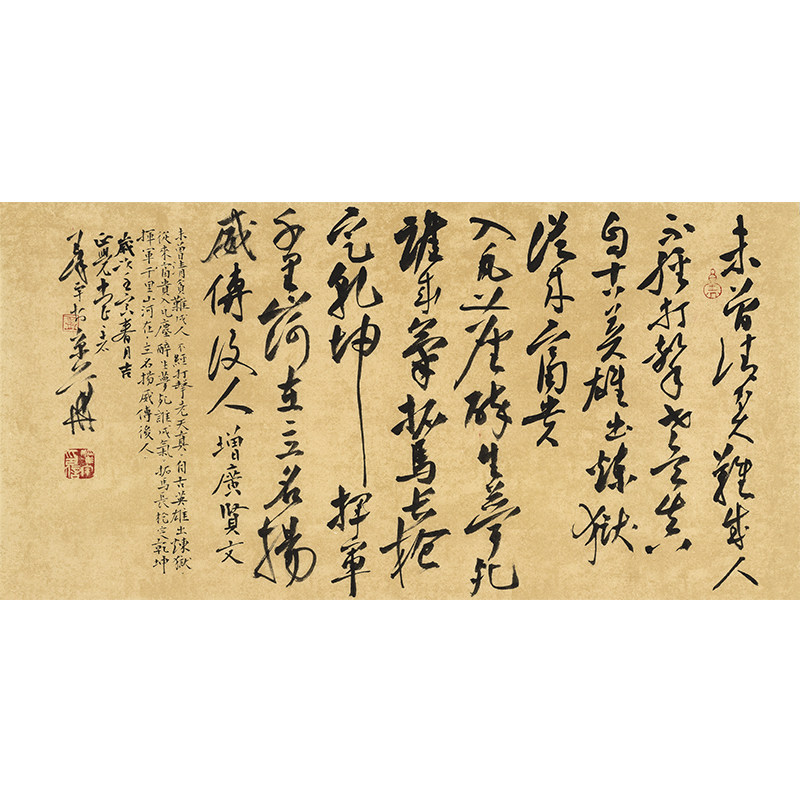 未曾清貧難成人
不經打擊老天真
自古英雄出煉獄
從來富貴
入凡塵醉生夢死
誰成氣拓馬長槍
定乾坤揮軍
千里山河在立名揚
威傳後人 增廣賢文
未曾清貧難成人 不經打擊老天真 自古英雄出煉獄
從來富貴入凡塵 醉生夢死誰成氣 拓馬長槍定乾坤
揮軍千里山河在 立名揚威傳後人
歲次壬寅春月吉